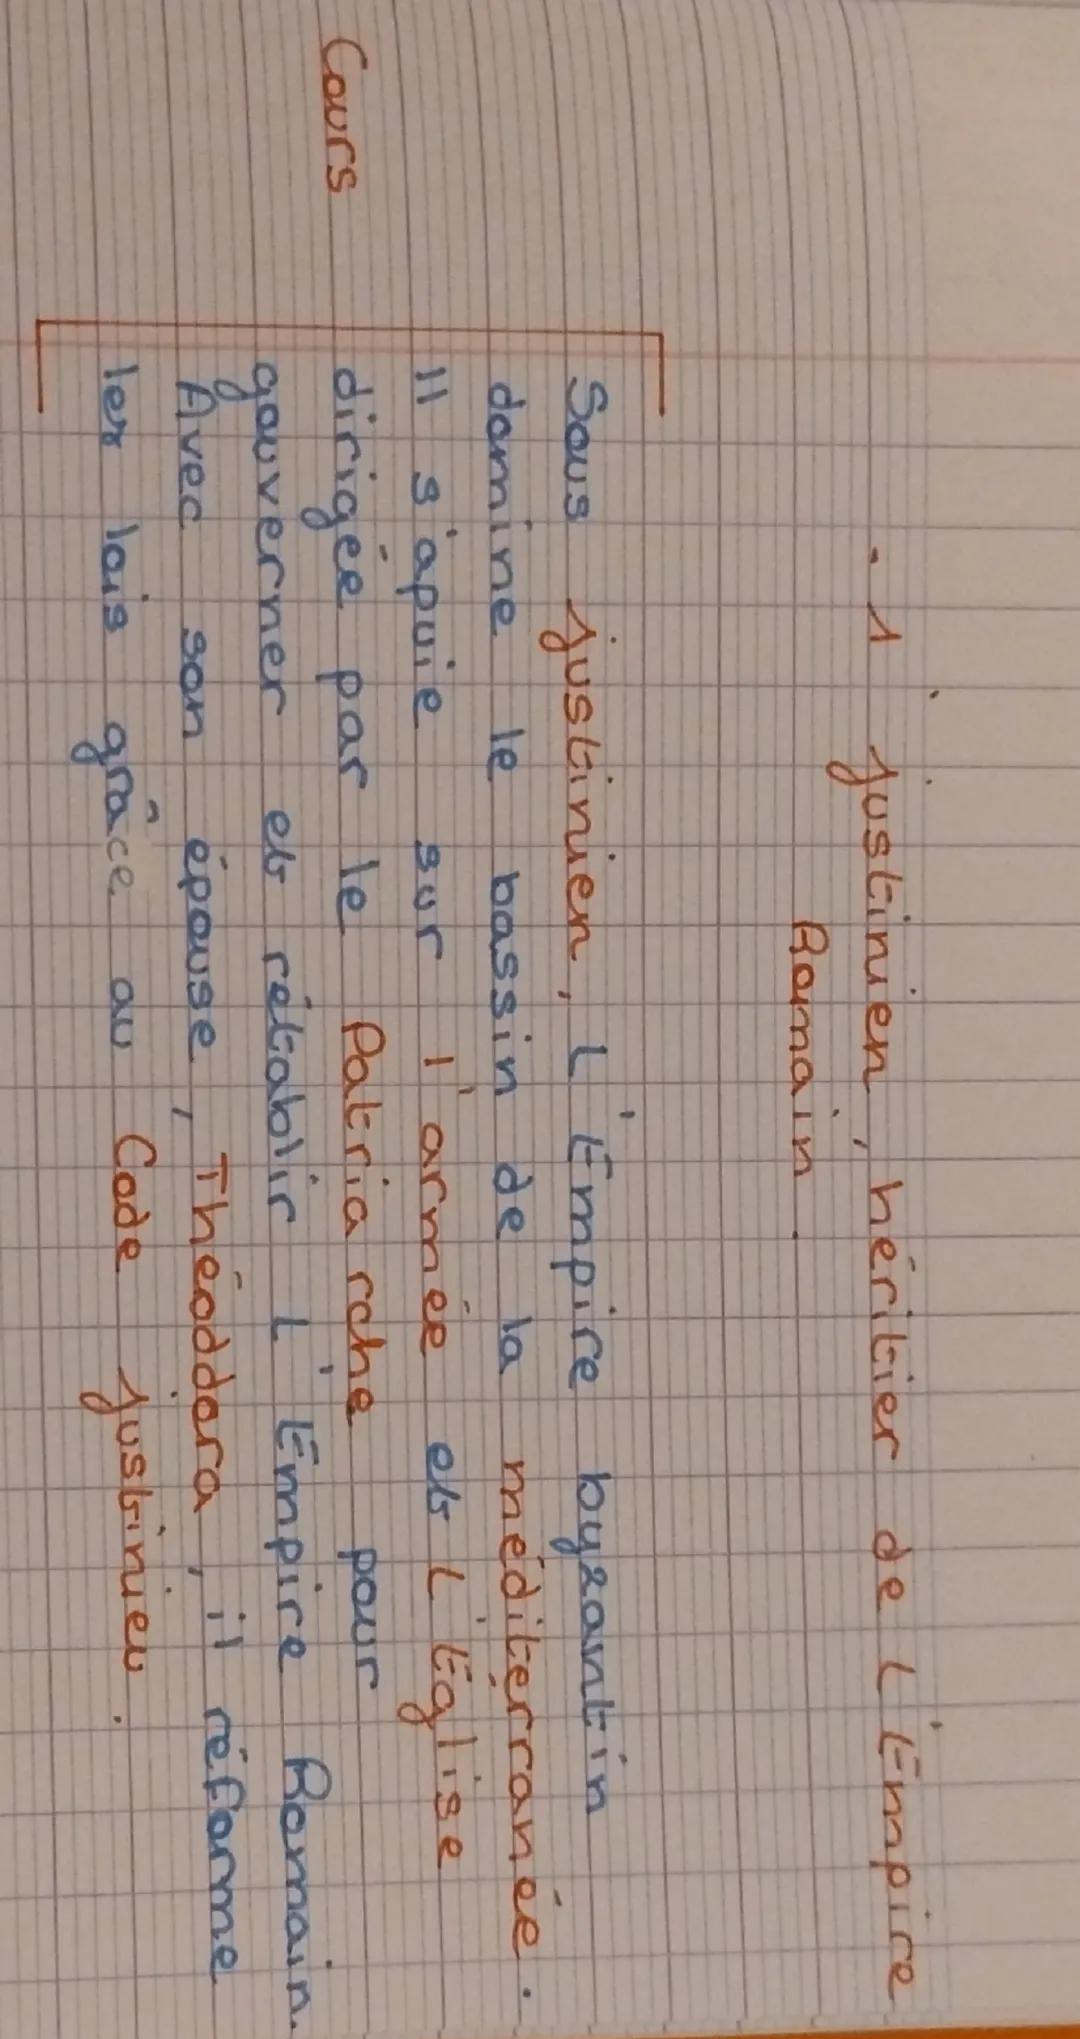 - 1 justinien, héritier de L'Empire
Romain.
Cours
Sous justinien, L'Empire byzantin
domine le bassin de la méditérranée.
Il s'apuie sur l'armée et L'Eglise
dirigée par le Patriarche pour
gouverner et rétablir L'Empire Romain.
Avec son épouse, Théoddora, il réforme
les lois grâce au Code justinien.